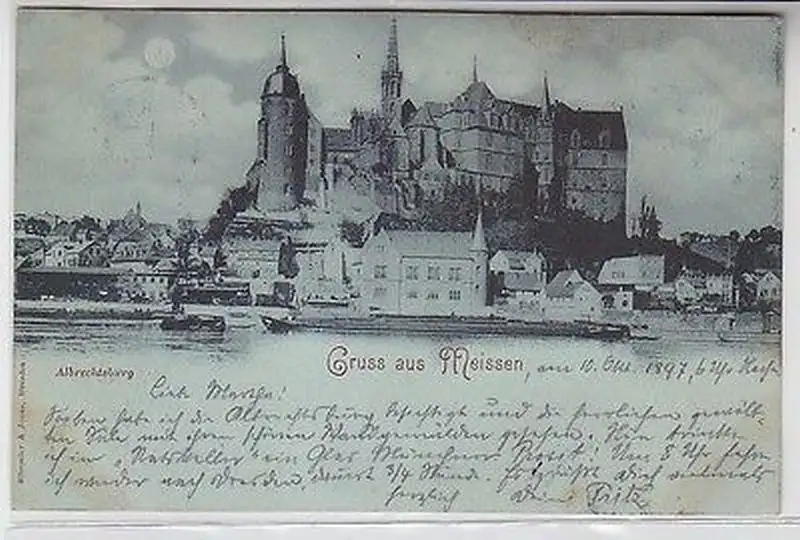 Albrechtsburg
Gruss aus Meissen, am 10. Okt. 1897, 6 Uhr
Liebe Martha!
Soeben habe ich die Albrechtsburg besichtigt und die herrlichen gewölb-
ten Säle mit ihren schönen Wandgemälden gesehen. Hier trinke
ich im „Ratskeller" ein Glas Münchner ! Um 8 Uhr fahre
ich wieder nach Dresden, dauert 3/4 Stunde. Es grüßt Dich vielmals
herzlich Dein Fritz